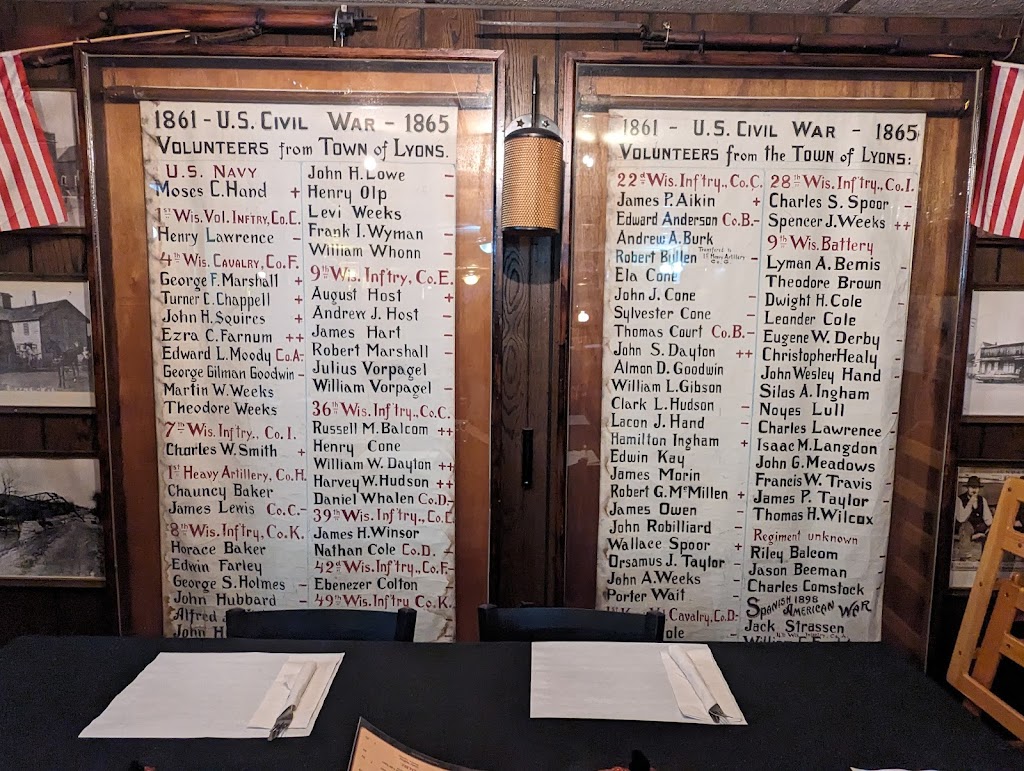 1861 - U.S. CIVIL WAR - 1865
VOLUNTEERS from TOWN of LYONS.
U.S. NAVY
Moses C. Hand +
1st Wis. Vol. Inftry, Co. C.
Henry Lawrence -
4th Wis. Cavalry, Co. F.
George F. Marshall +
Turner C. Chappell +
John H. Squires +
Ezra C. Farnum ++
Edward L. Moody Co. A-
George Gilman Goodwin -
Martin W. Weeks
Theodore Weeks
7th Wis. Inf'try., Co. I.
Charles W. Smith +
1st Heavy Artillery, Co. H.
Chauncy Baker
James Lewis Co. C.-
8th Wis. Inf'try, Co. K.
Horace Baker
Edwin Farley
George S. Holmes -
John Hubbard -
Alfred
John H
John H. Lowe -
Henry Olp
Levi Weeks
Frank I. Wyman -
William Whonn
9th Wis. Inf'try, Co. E.
August Host +
Andrew J. Host -
James Hart -
Robert Marshall -
Julius Vorpagel
William Vorpagel -
36th Wis. Inf'try, Co. C.
Russell M. Balcom ++
Henry Cone
William W. Dayton ++
Harvey W. Hudson ++
Daniel Whalen Co. D.-
39th Wis. Inf'try, Co. E
James H. Winsor
Nathan Cole Co. D. -
42nd Wis. Inf'try, Co. F-
Ebenezer Colton
49th Wis. Inf'try Co. K.
1861 - U.S. CIVIL WAR - 1865
VOLUNTEERS from the TOWN of LYONS:
22d Wis. Inf'try., Co. C.
James P. Aikin +
Edward Anderson Co. B.-
Andrew A. Burk
Robert Bullen Transferred to 1st Heavy Artillery -
Ela Cone
John J. Cone -
Sylvester Cone -
Thomas Court Co. B.-
John S. Dayton ++
Almon D. Goodwin
William L. Gibson
Clark L. Hudson -
Lacon J. Hand -
Hamilton Ingham +
Edwin Kay
James Morin
Robert G. McMillen +
James Owen
John Robilliard -
Wallace Spoor +
Orsamus J. Taylor
John A. Weeks -
Porter Wait -
Cavalry, Co. D-
ole -
28th Wis. Inf'try, Co. I.
Charles S. Spoor -
Spencer J. Weeks ++
9th Wis. Battery
Lyman A. Bemis -
Theodore Brown
Dwight H. Cole -
Leander Cole
Eugene W. Derby -
Christopher Healy -
John Wesley Hand -
Silas A. Ingham
Noyes Lull -
Charles Lawrence
Isaac M. Langdon -
John G. Meadows
Francis W. Travis -
James P. Taylor -
Thomas H. Wilcox
Regiment unknown
Riley Balcom
Jason Beeman
Charles Comstock
SPANISH 1898 AMERICAN WAR
Jack Strassen